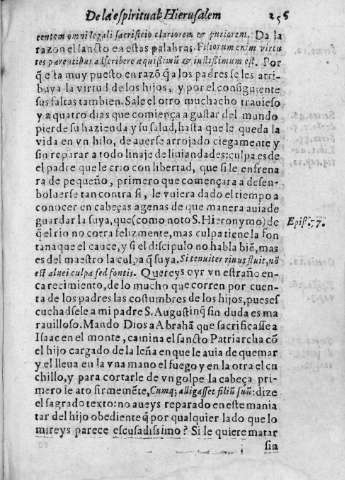 De la espiritual Hierusalem 256
centem omni legali sacrificio clariorem & potiorem. Da la
razon el sancto en estas palabras. Filiorum enim virtu
tes parentibus ascribere æquissimũ & iustissimum est. Por
q̃ esta muy puesto en razõ q̃ a los padres se les atri-
buya la virtud de los hijos, y por el consiguiente
sus faltas tambien. Sale el otro muchacho trauieso
y a quatro dias que comiença a gustar del mundo
pierde su hazienda y su salud, hasta que le queda la
vida en vn hilo, de auerse arrojado ciegamente y
sin reparar a todo linaje de liuiandades: culpa es de
el padre que le crio con libertad, que si le enfrena
ra de pequeño, primero que començara a desen-
boluerse tanto contra si, le vuiera dado el tiempo a
conocer en cabeças agenas de que manera auia de
guardar la suya, que (como noto S. Hieronymo) de
q̃ el rio no corra felizmente, mas culpa tiene la fon
tana que el cauce, y si el discipulo no habla biẽ, mas
es del maestro la culpa q̃ suya. Si tenuiter riuus fluit, nõ
est aluei culpa sed fontis. Quereys oyr vn estraño en-
carecimiento, de lo mucho que corren por cuen-
ta de los padres las costumbres de los hijos, pues es
cuchadsele a mi padre S. Augustin, q̃ sin duda es ma
rauilloso. Mando Dios a Abrahã que sacrificasse a
Isaac en el monte, camina el sancto Patriarcha cõ
el hijo cargado de la leña en que le auia de quemar
y el lleua en la vna mano el fuego y en la otra el cu
chillo, y para cortarle de vn golpe la cabeça pri-
mero le ato firmemẽte, Cumq; alligasset filiũ suũ: dize
el sagrado texto: no aueys reparado en este mania
tar del hijo obediente q̃ por qualquier lado que lo
mireys parece escusadissimo? Si le quiere matar
sin
Epist. 57.